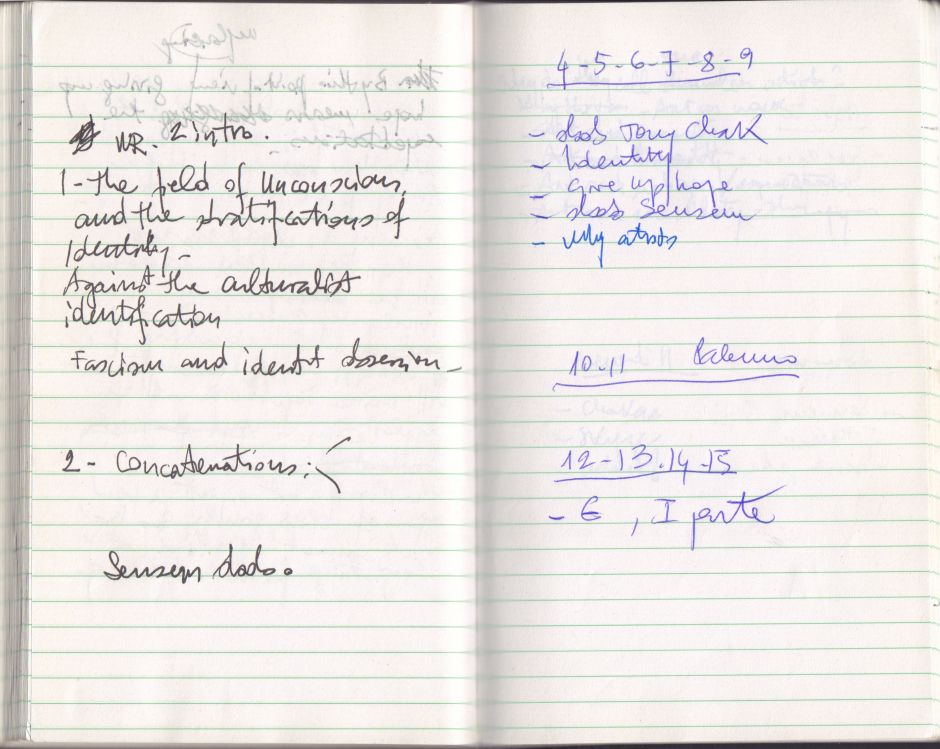 WR. 2 intro.
1 - the field of Unconscious,
and the stratifications of
Identity -
Against the culturalist
identification
Fascism and identit obsession -
2 - Concatenations :
Sensem dado.
4 - 5 - 6 - 7 - 8 - 9
- Tony Chak
- Identity
- give up hope
- Sensem
- why artists
10-11 Palermo
12 - 13. 14 - 15
- 6 , I parte